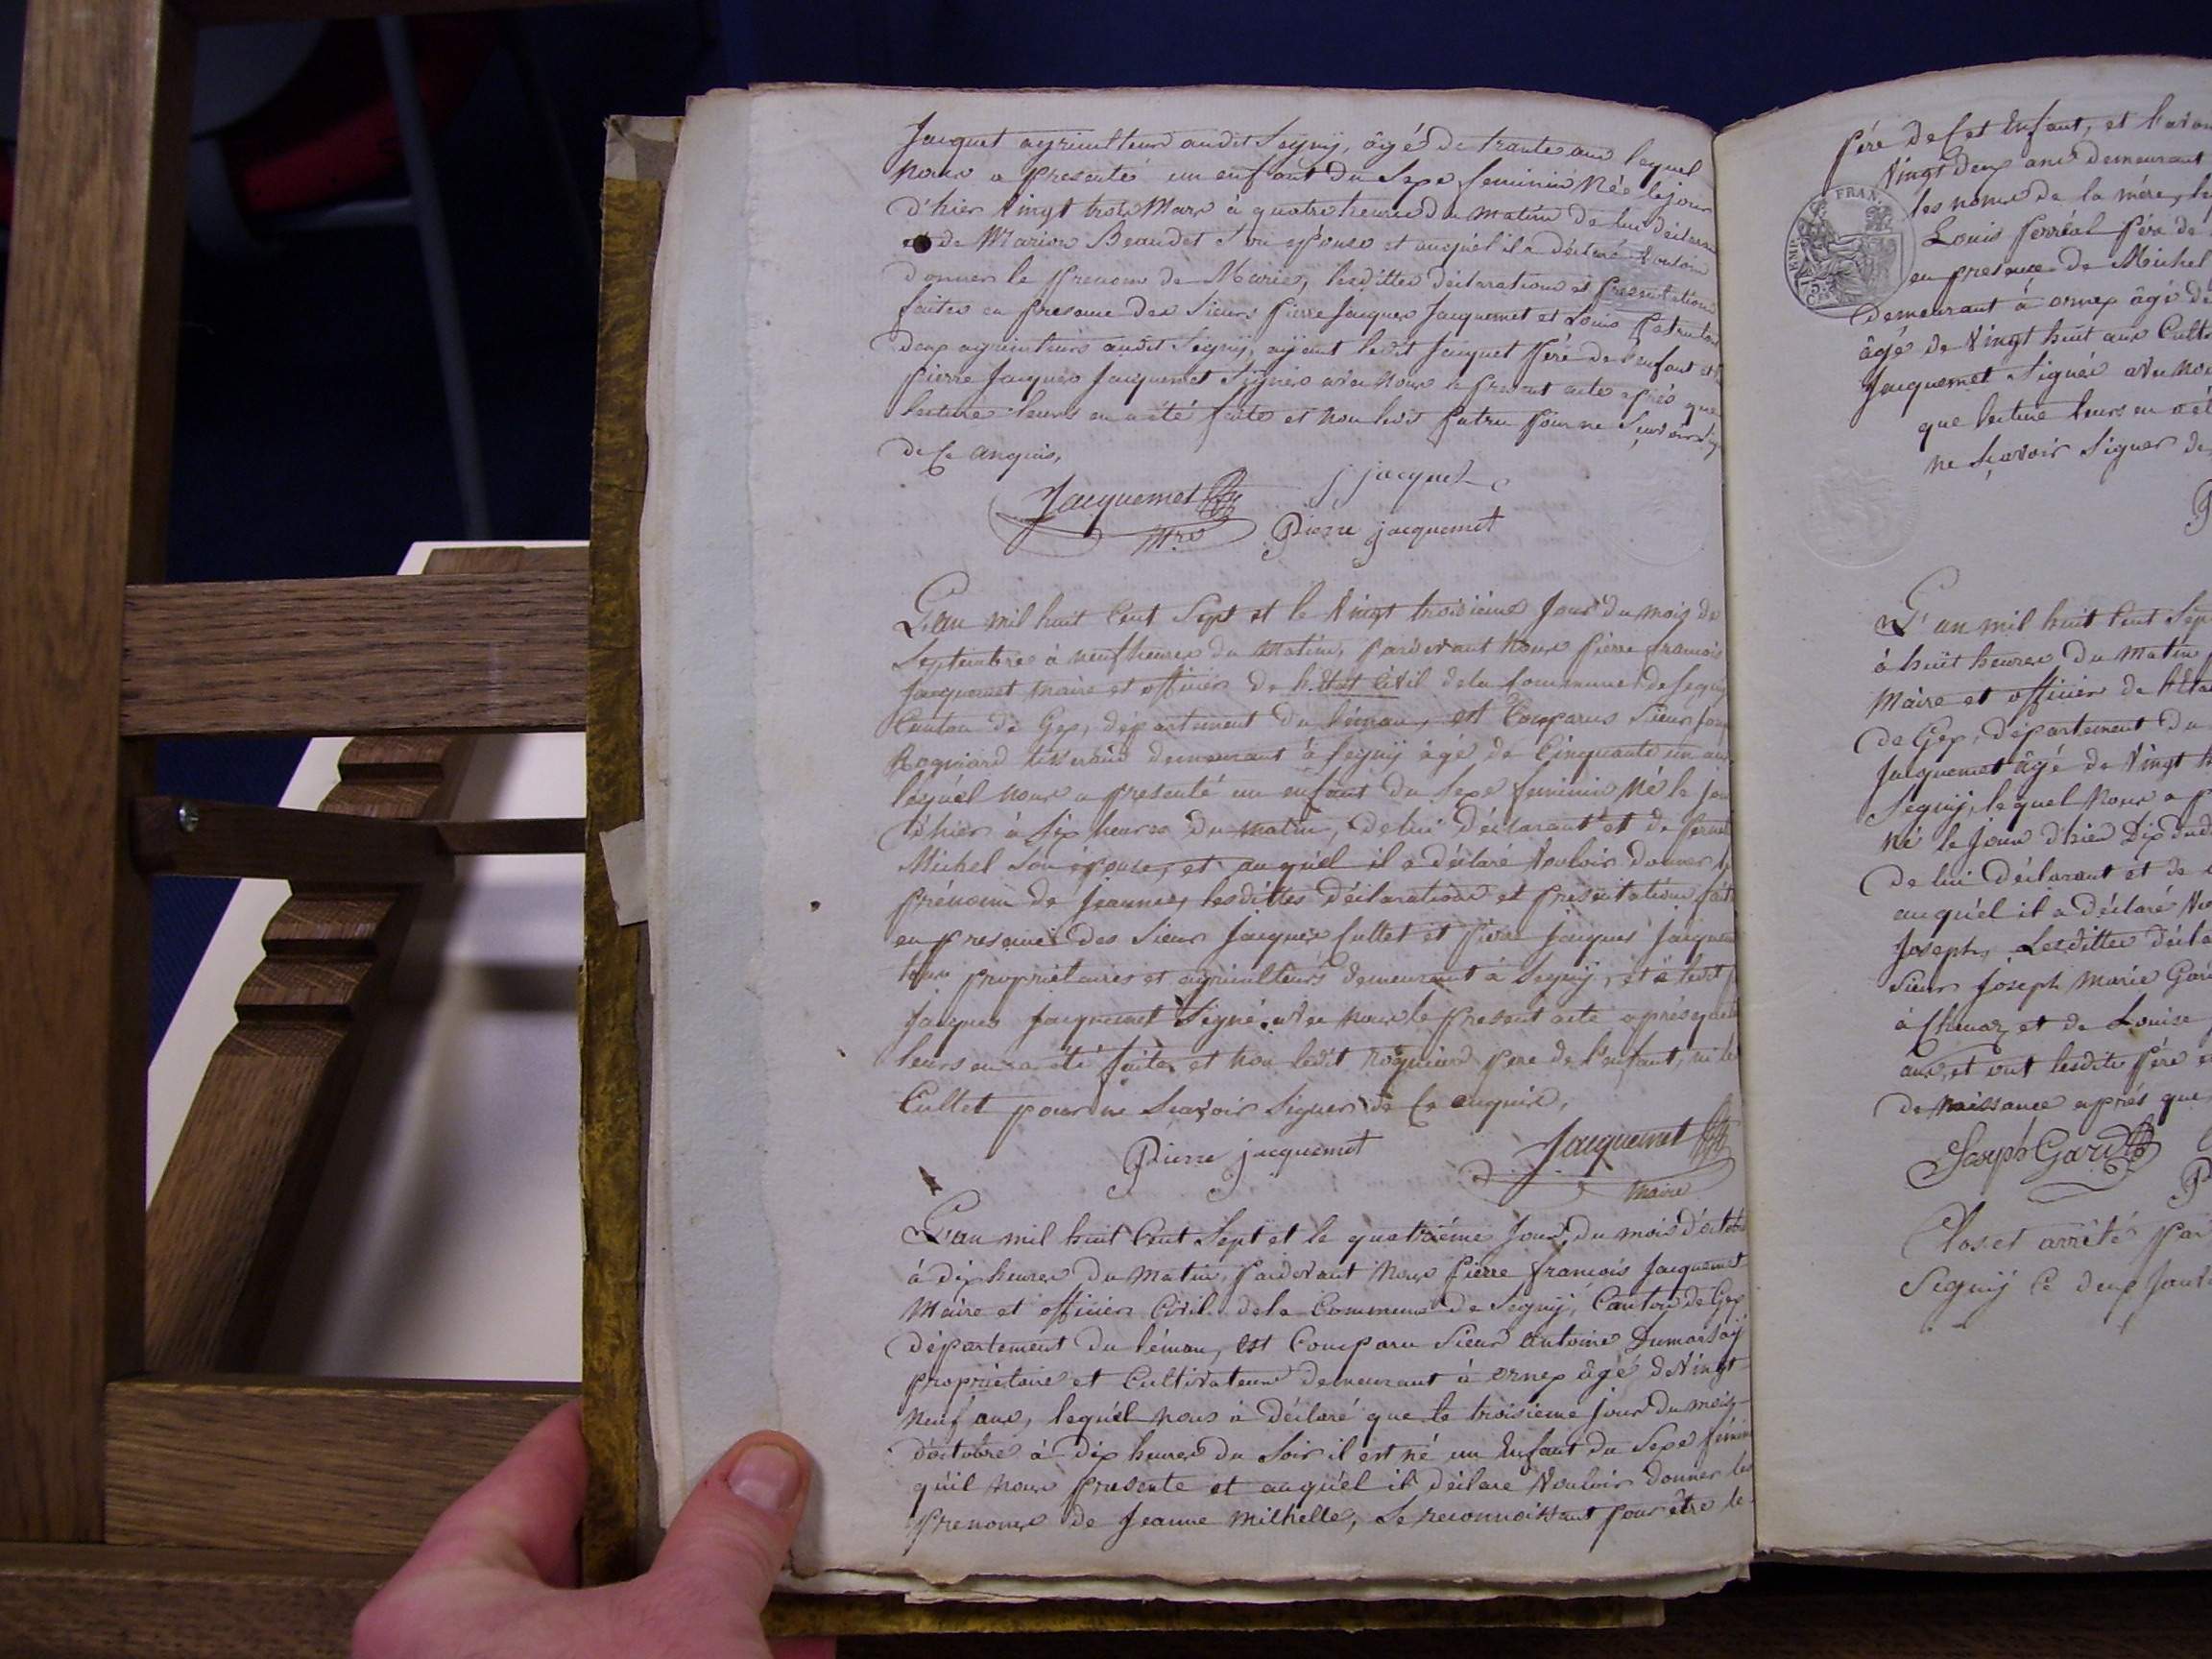 Jacquet agriculteur audit Segny, âgé de trante ans lequel
nous a presenté un enfant du Sexe feminin Née le jour
d'hier vingt trois Mars à quatre heures du matin de lui déclarant
et de Marion Beaudet Son epouse et auquel il a déclaré vouloir
donner le prenom de Marie, lesdittes déclarations et presentation
faites en presence des Sieurs pierre Jacques Jacquemet et Louis
deux agriculteurs audit Segny, ayant ledit Jacquet père de l'enfant et
pierre Jacques Jacquemet Signés avec nous le present acte après que
lecture leurs en a été faite et non ledit patru pour ne Scavoir
de ce anquis,
Jacquemet jacquet
Mre Pierre jacquemet
L'an mil huit Cent Sept et le vingt troisième Jour du mois de
Septembre à neuf heures du matin, pardevant nous pierre francois
Jacquemet maire et officier de l'Etat Civil de la Commune de Segny
Canton de Gex, département du Léman, est Comparus Sieur
Rogniard tisserand demeurant à Segny âgé de Cinquante un ans
lequel nous a presenté un enfant du Sexe feminin Né le jour
d'hier à Six heures du matin, de lui déclarant et de
Michel Son épouse, et auquel il a déclaré vouloir donner le
prénom de jeanne, lesdittes déclaration et presentation faite
en presence des Sieur Jacques Cullet et pierre Jacques Jacquemet
propriétaires et agriculteurs demeurant à Segny, et a ledit
Jacques Jacquemet Signé avec nous le present acte après que
leurs en a été faite et non ledit rogniard pere de l'enfant, ni le
Cullet pour ne Scavoir Signer de ce enquis,
Pierre jacquemet Jacquemet
maire
L'an mil huit Cent Sept et le quatrième Jour du mois d'octobre
à dix heures du matin, pardevant nous pierre francois Jacquemet
Maire et officier Civil de la Commune de Segny, Canton de Gex
département du léman, est Comparu Sieur antoine Dumarsay
propriétaire et Cultivateur demeurant à ornex âgé de vingt
neuf ans, lequel nous à déclaré que le troisieme jour du mois
d'octobre à dix heures du Soir il est né un Enfant du Sexe féminin
qu'il nous presente et auquel il déclare vouloir donner les
prenoms de Jeanne Milhelle, Se reconnoissant pour être le
père de Cet Enfant, et l'avoir
vingt deux ans demeurant
les noms de la mère,
Louis perréal père de
en presence de Michel
demeurant à ornex âgé de
âgé de vingt huit ans
Jacquemet Signés avec nous
que lecture leurs en a été
ne Scavoir Signer de
FRAN
EMP
L'an mil huit Cent Sept
à huit heures du matin
Maire et officier de l'Etat
de Gex, département du
Jacquemet âgé de vingt
Segny, lequel nous a
né le jour d'hier Dix
de lui déclarant et de
auquel il a déclaré
Joseph, Lesdittes
Sieur Joseph Marie
à et de Louise
ans, et ont lesdits père
de naissance après que
Joseph Gard
Clos et arrêté par
Segny le deux